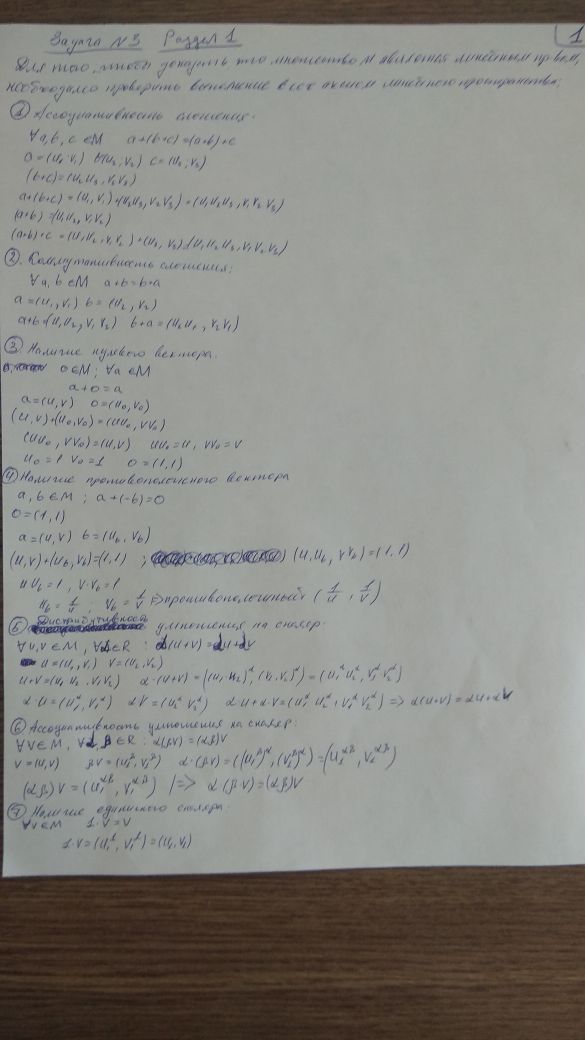 Задача №3 Раздел 1
1
Для того, чтобы доказать что множество M является линейным пр-вом,
необходимо проверить выполнение всех аксиом линейного пространства:
① Ассоциативность сложения.
∀a, b, c ∈ M a+(b+c)=(a+b)+c
a=(u₁, v₁) b(u₂, v₂) c=(u₃, v₃)
(b+c)=(u₂u₃, v₂v₃)
a+(b+c)=(u₁, v₁)+(u₂u₃, v₂v₃)=(u₁u₂u₃, v₁v₂v₃)
(a+b)=(u₁u₂, v₁v₂)
(a+b)+c=(u₁u₂, v₁v₂)+(u₃, v₃)=(u₁u₂u₃, v₁v₂v₃)
② Коммутативность сложения:
∀a, b ∈ M a+b=b+a
a=(u₁, v₁) b=(u₂, v₂)
a+b=(u₁u₂, v₁v₂) b+a=(u₂u₁, v₂v₁)
③ Наличие нулевого вектора.
0∈M; ∀a∈M
a+0=a
a=(u, v) 0=(u₀, v₀)
(u, v)+(u₀, v₀)=(uu₀, vv₀)
(uu₀, vv₀)=(u, v) uu₀=u, vv₀=v
u₀=1 v₀=1 0=(1, 1)
④ Наличие противоположного вектора
a, b∈M; a+(-b)=0
0=(1, 1)
a=(u, v) b=(u_b, v_b)
(u, v)+(u_b, v_b)=(1, 1) ; (u, u_b, v v_b)=(1, 1)
u u_b=1, v·v_b=1
u_b=1/u ; v_b=1/v ⇒ противоположный (1/u, 1/v)
⑤ Дистрибутивность умножения на скаляр:
∀u, v∈M, ∀α∈R: α(u+v)=αu+αv
u=(u₁, v₁) v=(u₂, v₂)
u+v=(u₁u₂, v₁v₂) α·(u+v)=((u₁·u₂)^α, (v₁·v₂)^α)=(u₁^α u₂^α, v₁^α v₂^α)
α·u=(u₁^α, v₁^α) αv=(u₂^α v₂^α) α·u+α·v=(u₁^α u₂^α, v₁^α v₂^α) => α(u+v)=αu+αv
⑥ Ассоциативность умножения на скаляр:
∀v∈M, ∀α, β∈R: α(βv)=(αβ)v
v=(u, v) βv=(u₁^β, v₁^β) α·(βv)=((u₁^β)^α, (v₁^β)^α)=(u₁^αβ, v₁^αβ)
(αβ)v=(u₁^αβ, v₁^αβ) |=> α·(β·v)=(αβ)v
⑦ Наличие единичного скаляра:
∀v∈M 1·v=v
1·v=(u₁^1, v₁^1)=(u₁, v₁)